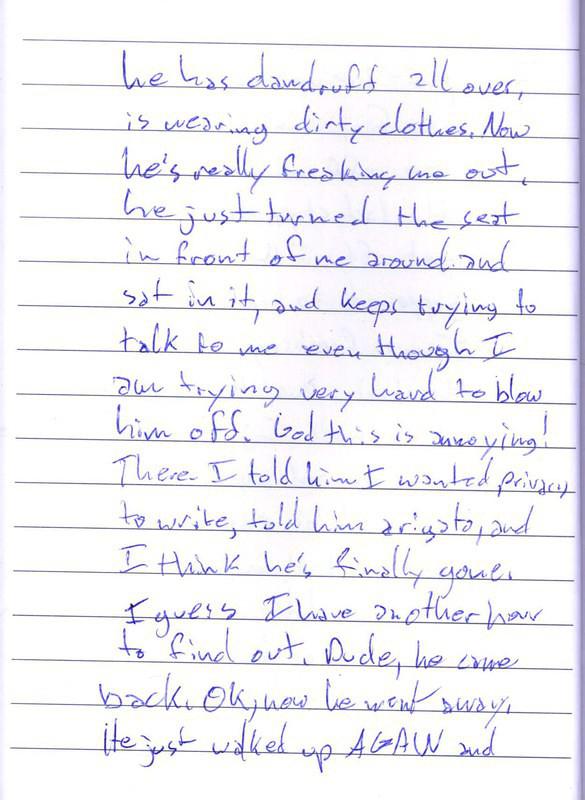 he has dandruff all over,
is wearing dirty clothes. Now
he's really freaking me out,
he just turned the seat
in front of me around and
sat in it, and keeps trying to
talk to me even though I
am trying very hard to blow
him off. God this is annoying!
There I told him I wanted privacy
to write, told him arigato, and
I think he's finally gone.
I guess I have another hour
to find out. Dude, he came
back. OK, now he went away.
He just walked up AGAIN and